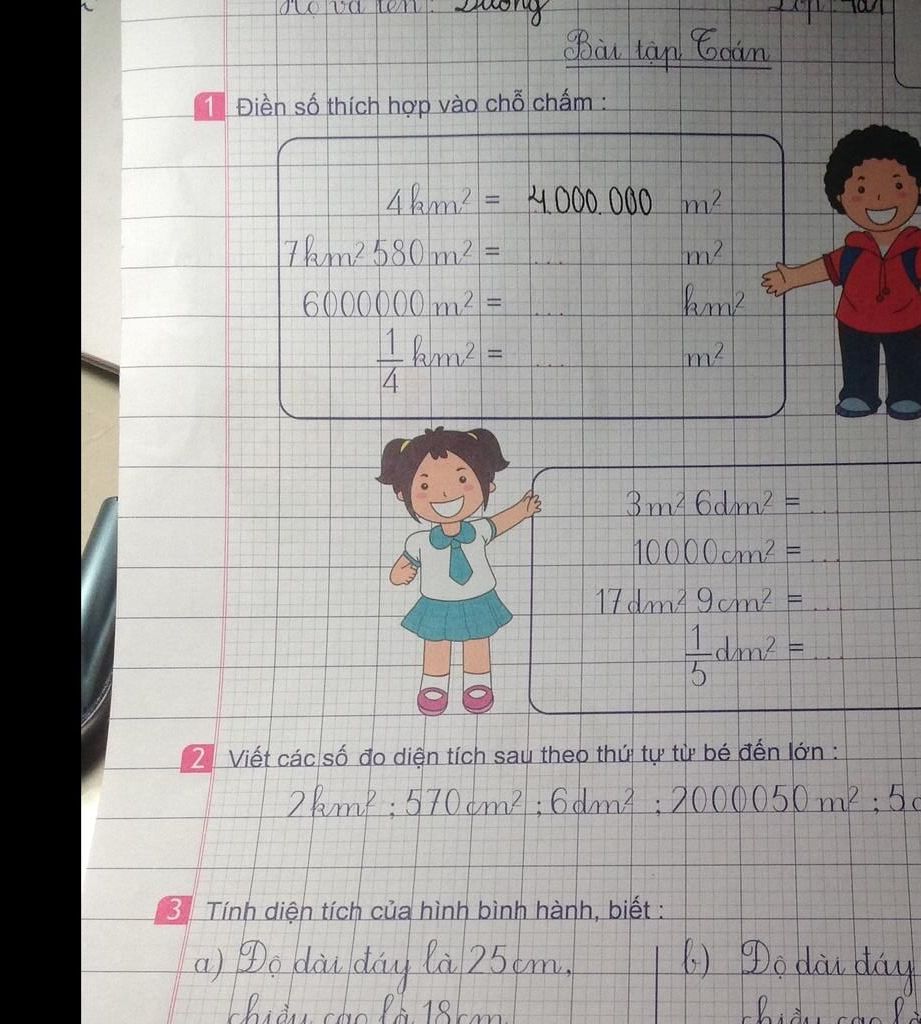 Họ và tên : Dương Lớp : 4a1
Bài tập Toán
1 Điền số thích hợp vào chỗ chấm :
4km² = 4.000.000 m²
7km² 580m² = ... m²
6000000m² = ... km²
1/4 km² = ... m²
3m² 6dm² = ...
10000cm² = ...
17dm² 9cm² = ...
1/5 dm² = ...
2 Viết các số đo diện tích sau theo thứ tự từ bé đến lớn :
2km² ; 570cm² ; 6dm² ; 2000050m² ; 5
3 Tính diện tích của hình bình hành, biết :
a) Độ dài đáy là 25cm, b) Độ dài đáy
chiều cao là 18cm chiều cao là